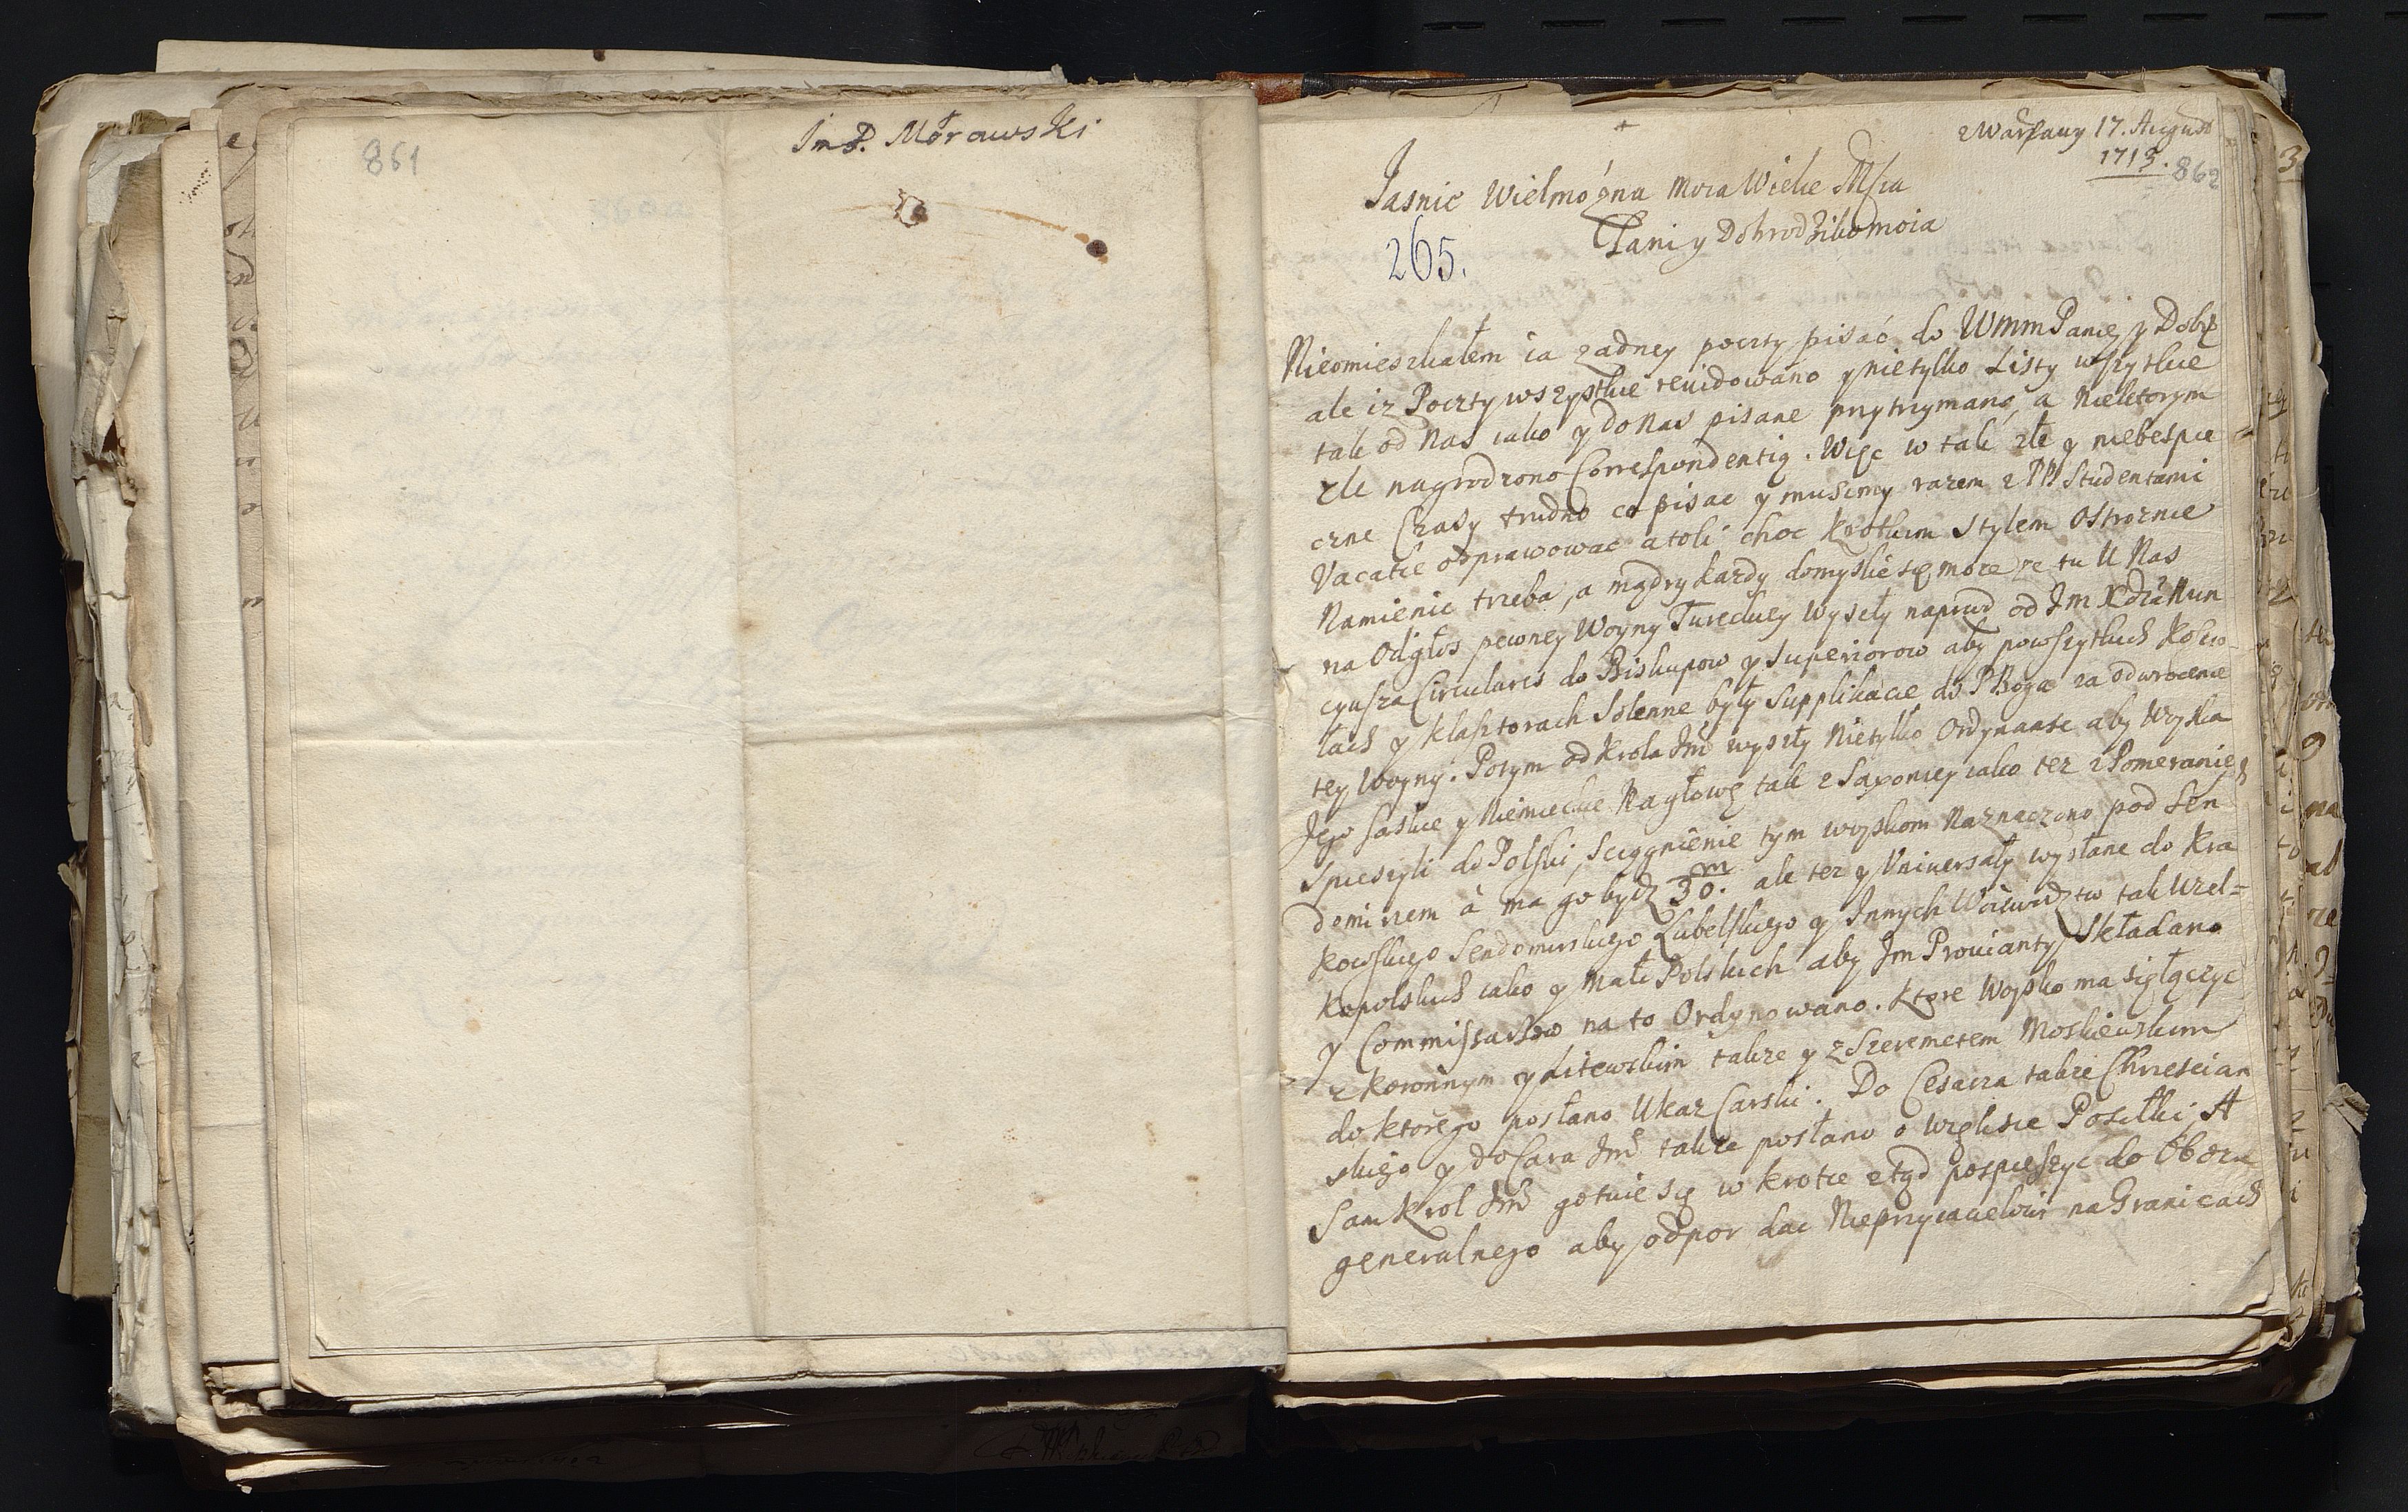 861
Jm P. Morawski
z Warszawy 17. August
1713.
862
Jasnie Wielmożna Moia Wielce Mścia
Pani y Dobrodziko moia
265.
Nieomieszkałem ia zadney poczty pisać do WmmPanięy Dobr
ale iz Poczty wszystkie rewidowano y nietylko Listy wszytkie
tak od Nas iako y do Nas pisane przytrzymano, a Niektorym
zle nagrodzono Correspondentią. Więc w tak złe y niebespie
czne Czasy trudno co pisac y musimy razem z PP Studentami
Vacatie odprawowac atoli choc krotkim Stylem Ostroznie
Namienic trzeba, a mądry kazdy domyslic się moze ze tu U Nas
na Odgłos pewney Woyny Tureckiey Wyszły naprzod od Jm Xdza Nun
cyusza Circulares do Biskupow y Superiorow aby powszytkich Koscio-
łach y klasztorach Solenne były Supplikacie do P Boga za odwrocenie
tey Woyny. Potym od Krola Jmci wyszły Nietylko Ordynanse aby Woyska
Jego Saskie y Niemieckie Nagłowę tak z Saxoniey iako tez z Pomeraniey
Spieszyli do Polski, Sciągnienie tym woyskom Naznaczono pod Sen
domirzem à ma go bydz 30.m ale tez y Uniwersały wysłane do Kra
kowskiego Sendomirskiego Lubelskiego y Innych Woiewodztw tak Wiel=
kopolskich iako y Mało Polskich aby Jm Prowianty Składano
y Commissarzow na to Ordynowano. Ktore Woysko ma się łączyc
z koronnym y Litewskim takze y z Szeremetem Moskiewskim
do ktorego posłano Ukaz Carski. Do Cesarza takze Chrzescian
skiego y do Cara Jmci takze posłano o większe Posiłki, A
Sam Krol Jmci gotuie się w krotce ztąd pospieszyc do Obozu
generalnego aby odpor dac Nieprzyiacielowi na Granicach